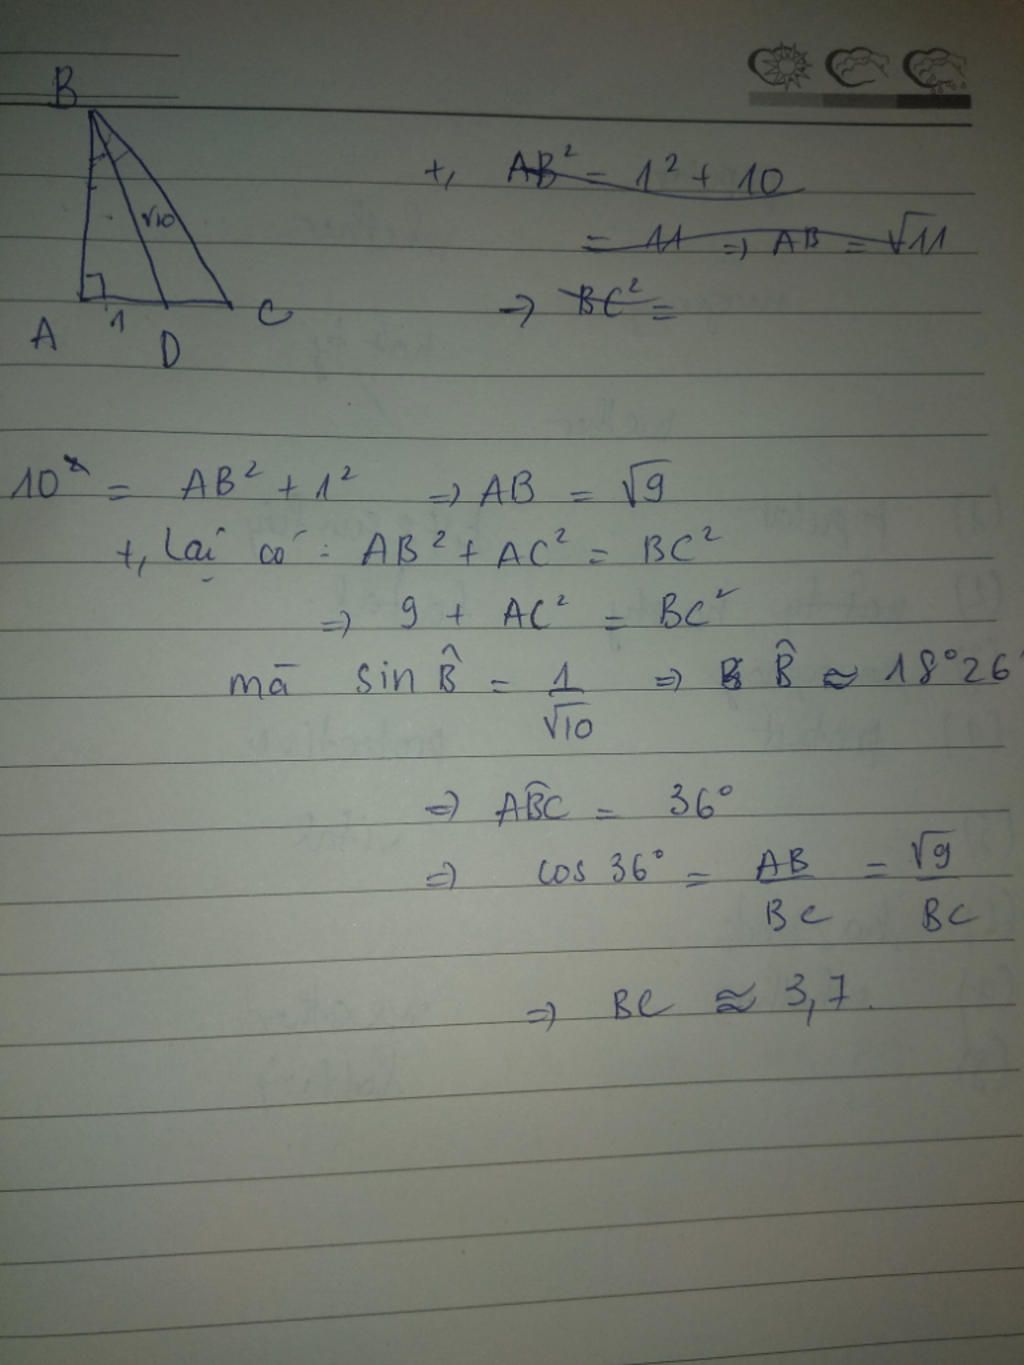 B
+, AB² = 1² + 10
√10
= 11 => AB = √11
=> BC² =
A 1 D C
10 = AB² + 1² => AB = √9
+, Lại có : AB² + AC² = BC²
=> 9 + AC² = BC²
mà sin B̂ = 1/√10 => B̂ ≈ 18°26'
=> ABC̑ = 36°
=> cos 36° = AB/BC = √9/BC
=> BC ≈ 3,7.